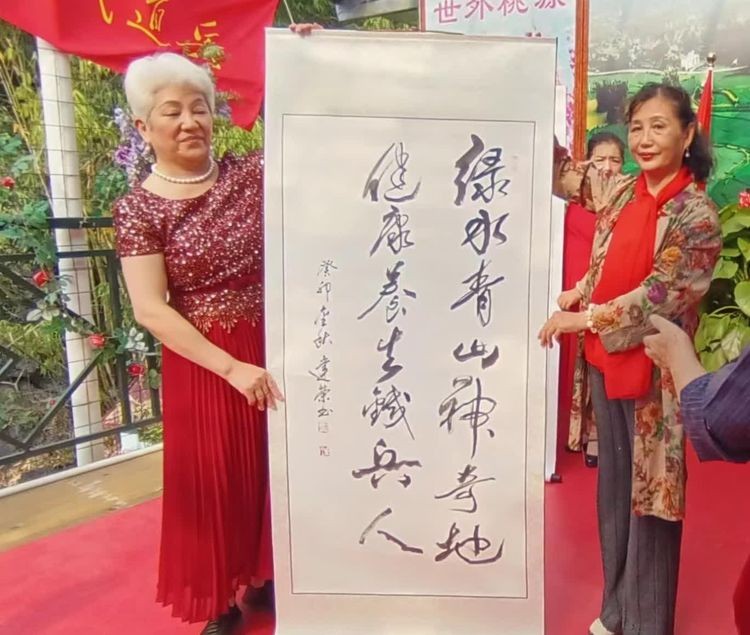 世外桃源
绿水青山神奇地
健康养生鐵兵人
癸卯金秋建荣书